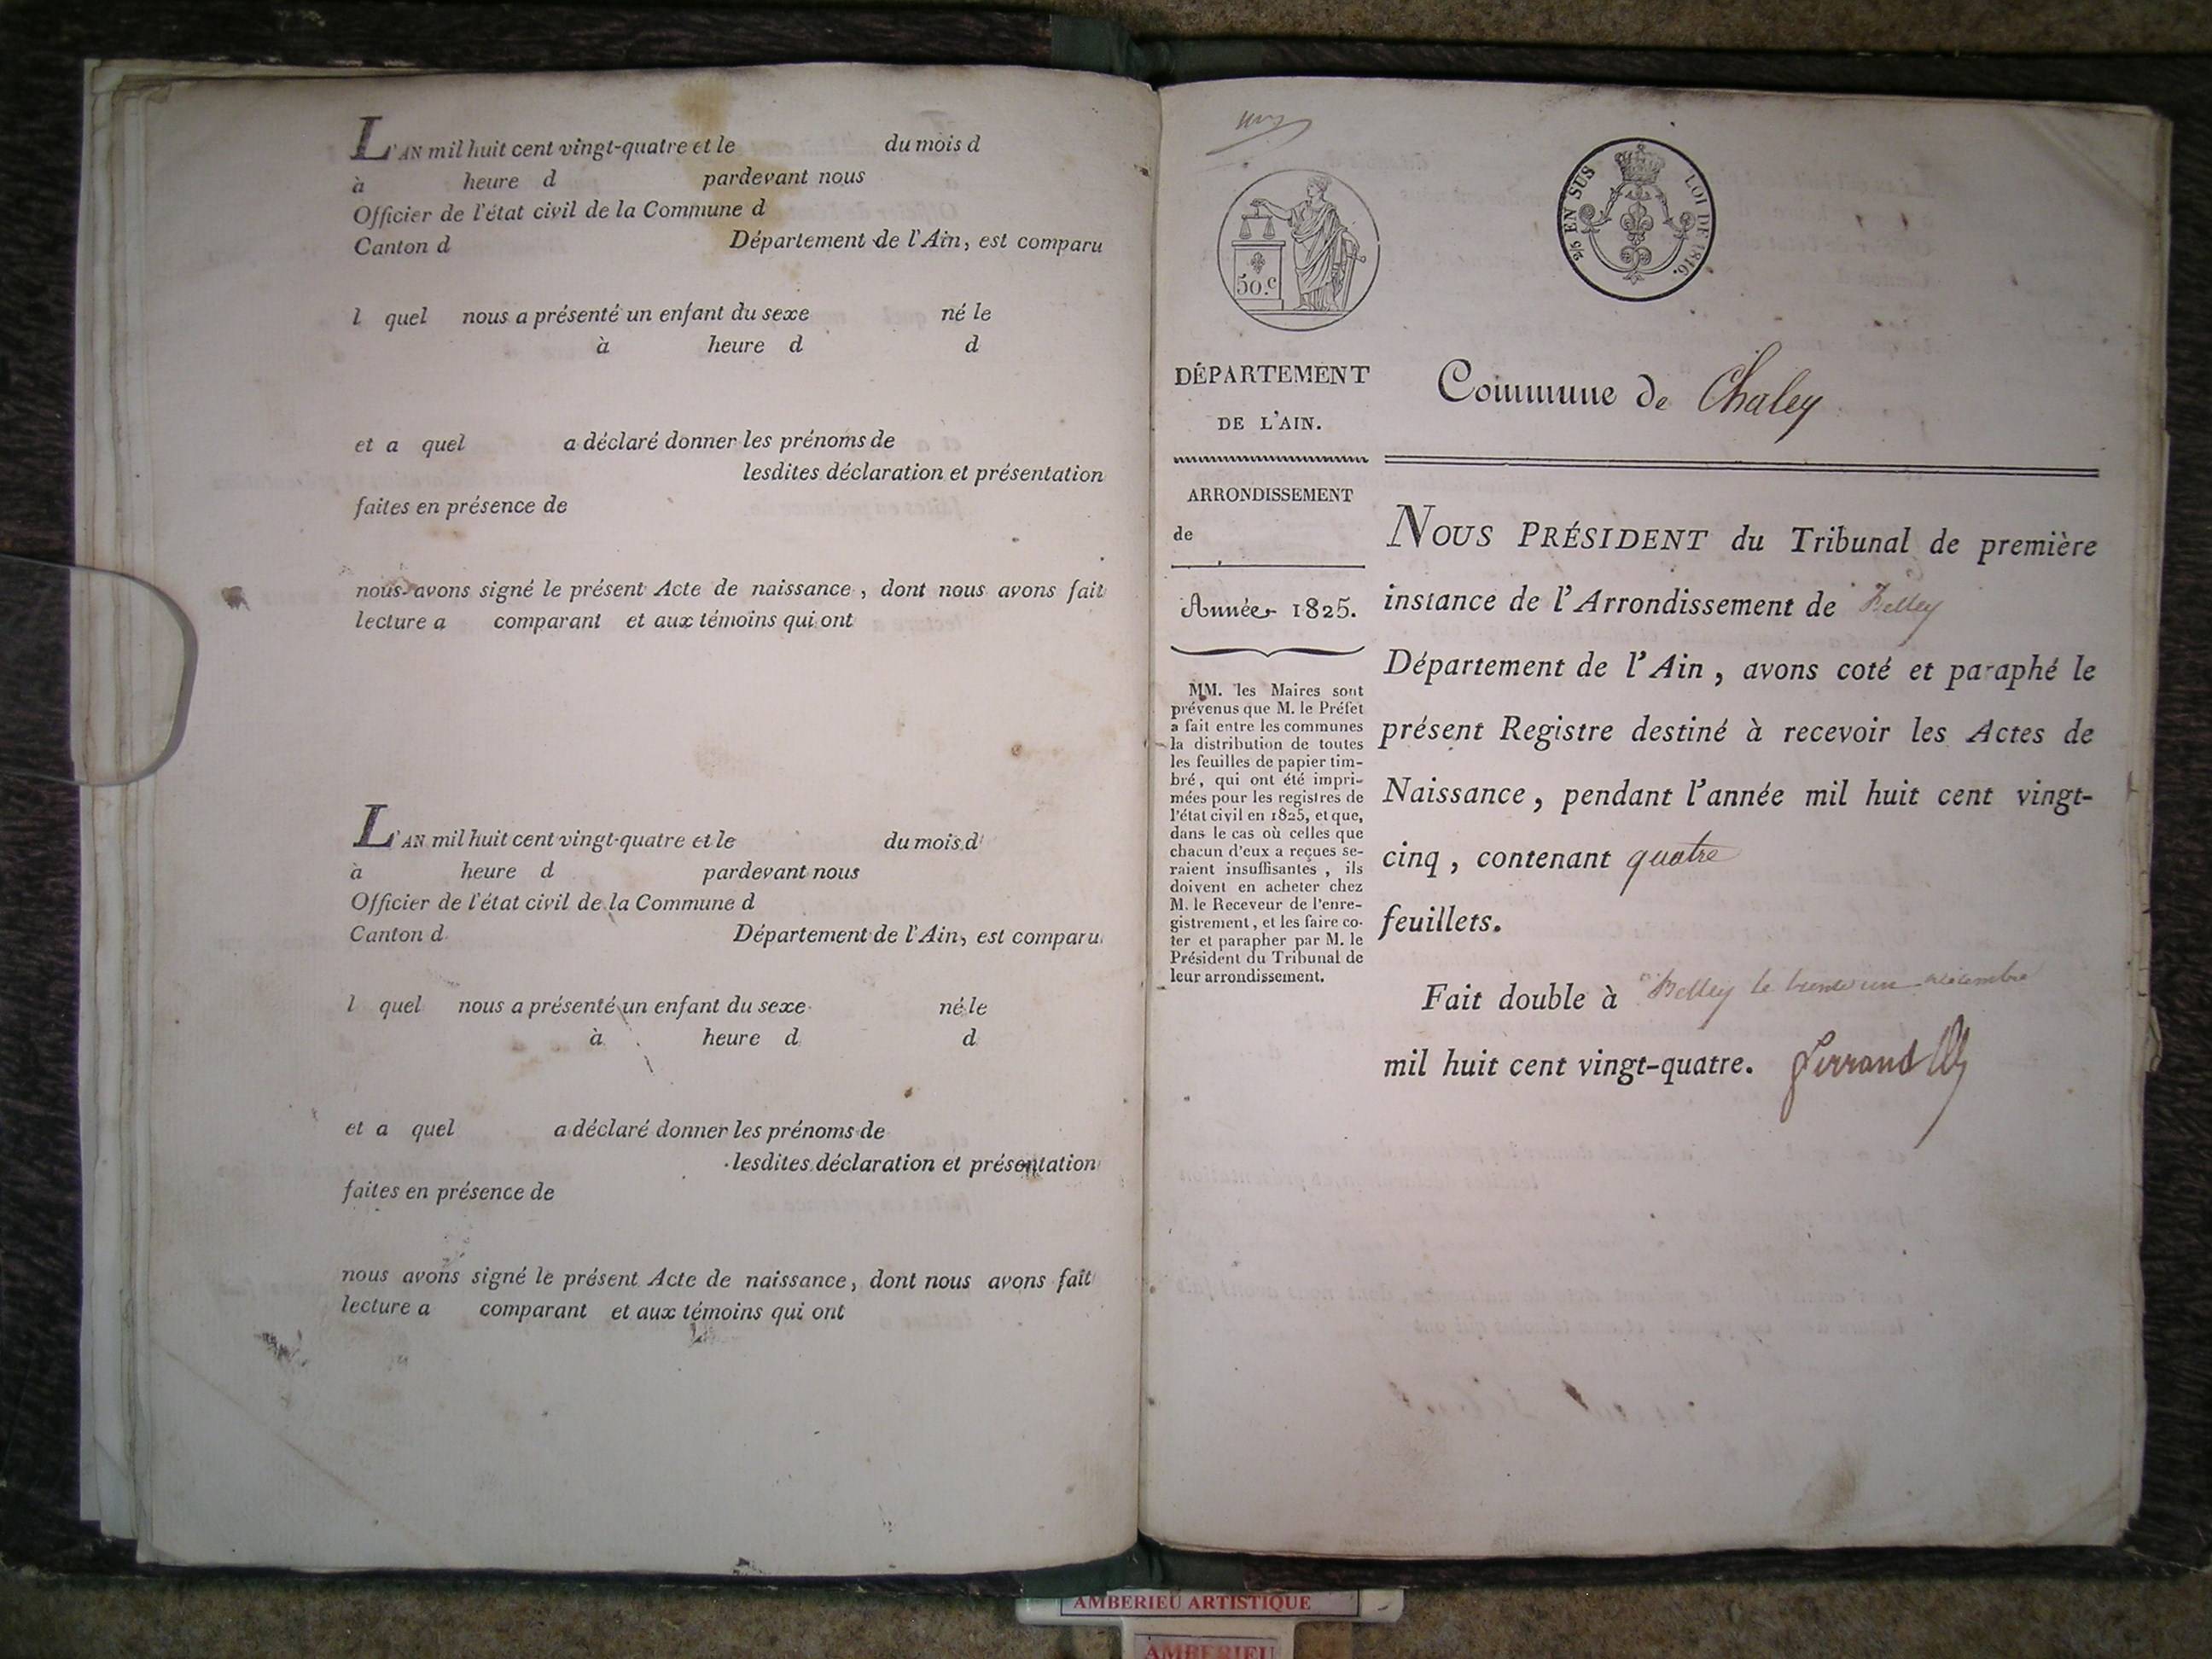 L'AN mil huit cent vingt-quatre et le du mois d
à heure d pardevant nous
Officier de l'état civil de la Commune d
Canton d Département de l'Ain, est comparu
l quel nous a présenté un enfant du sexe né le
à heure d d
et a quel a déclaré donner les prénoms de
lesdites déclaration et présentation
faites en présence de
nous avons signé le présent Acte de naissance, dont nous avons fait
lecture a comparant et aux témoins qui ont
L'AN mil huit cent vingt-quatre et le du mois d
à heure d pardevant nous
Officier de l'état civil de la Commune d
Canton d Département de l'Ain, est comparu
l quel nous a présenté un enfant du sexe né le
à heure d d
et a quel a déclaré donner les prénoms de
lesdites déclaration et présentation
faites en présence de
nous avons signé le présent Acte de naissance, dont nous avons fait
lecture a comparant et aux témoins qui ont
50.c
2/5 EN SUS LOI DE 1816.
DÉPARTEMENT
DE L'AIN.
ARRONDISSEMENT
de
Année 1825.
MM. les Maires sont
prévenus que M. le Préfet
a fait entre les communes
la distribution de toutes
les feuilles de papier tim-
bré, qui ont été impri-
mées pour les registres de
l'état civil en 1825, et que,
dans le cas où celles que
chacun d'eux a reçues se-
raient insuffisantes, ils
doivent en acheter chez
M. le Receveur de l'enre-
gistrement, et les faire co-
ter et parapher par M. le
Président du Tribunal de
leur arrondissement.
Commune de Chaley
NOUS PRÉSIDENT du Tribunal de première
instance de l'Arrondissement de Belley
Département de l'Ain, avons coté et paraphé le
présent Registre destiné à recevoir les Actes de
Naissance, pendant l'année mil huit cent vingt-
cinq, contenant quatre
feuillets.
Fait double à Belley le trente un décembre
mil huit cent vingt-quatre. Ferrand
AMBERIEU ARTISTIQUE
AMBERIEU